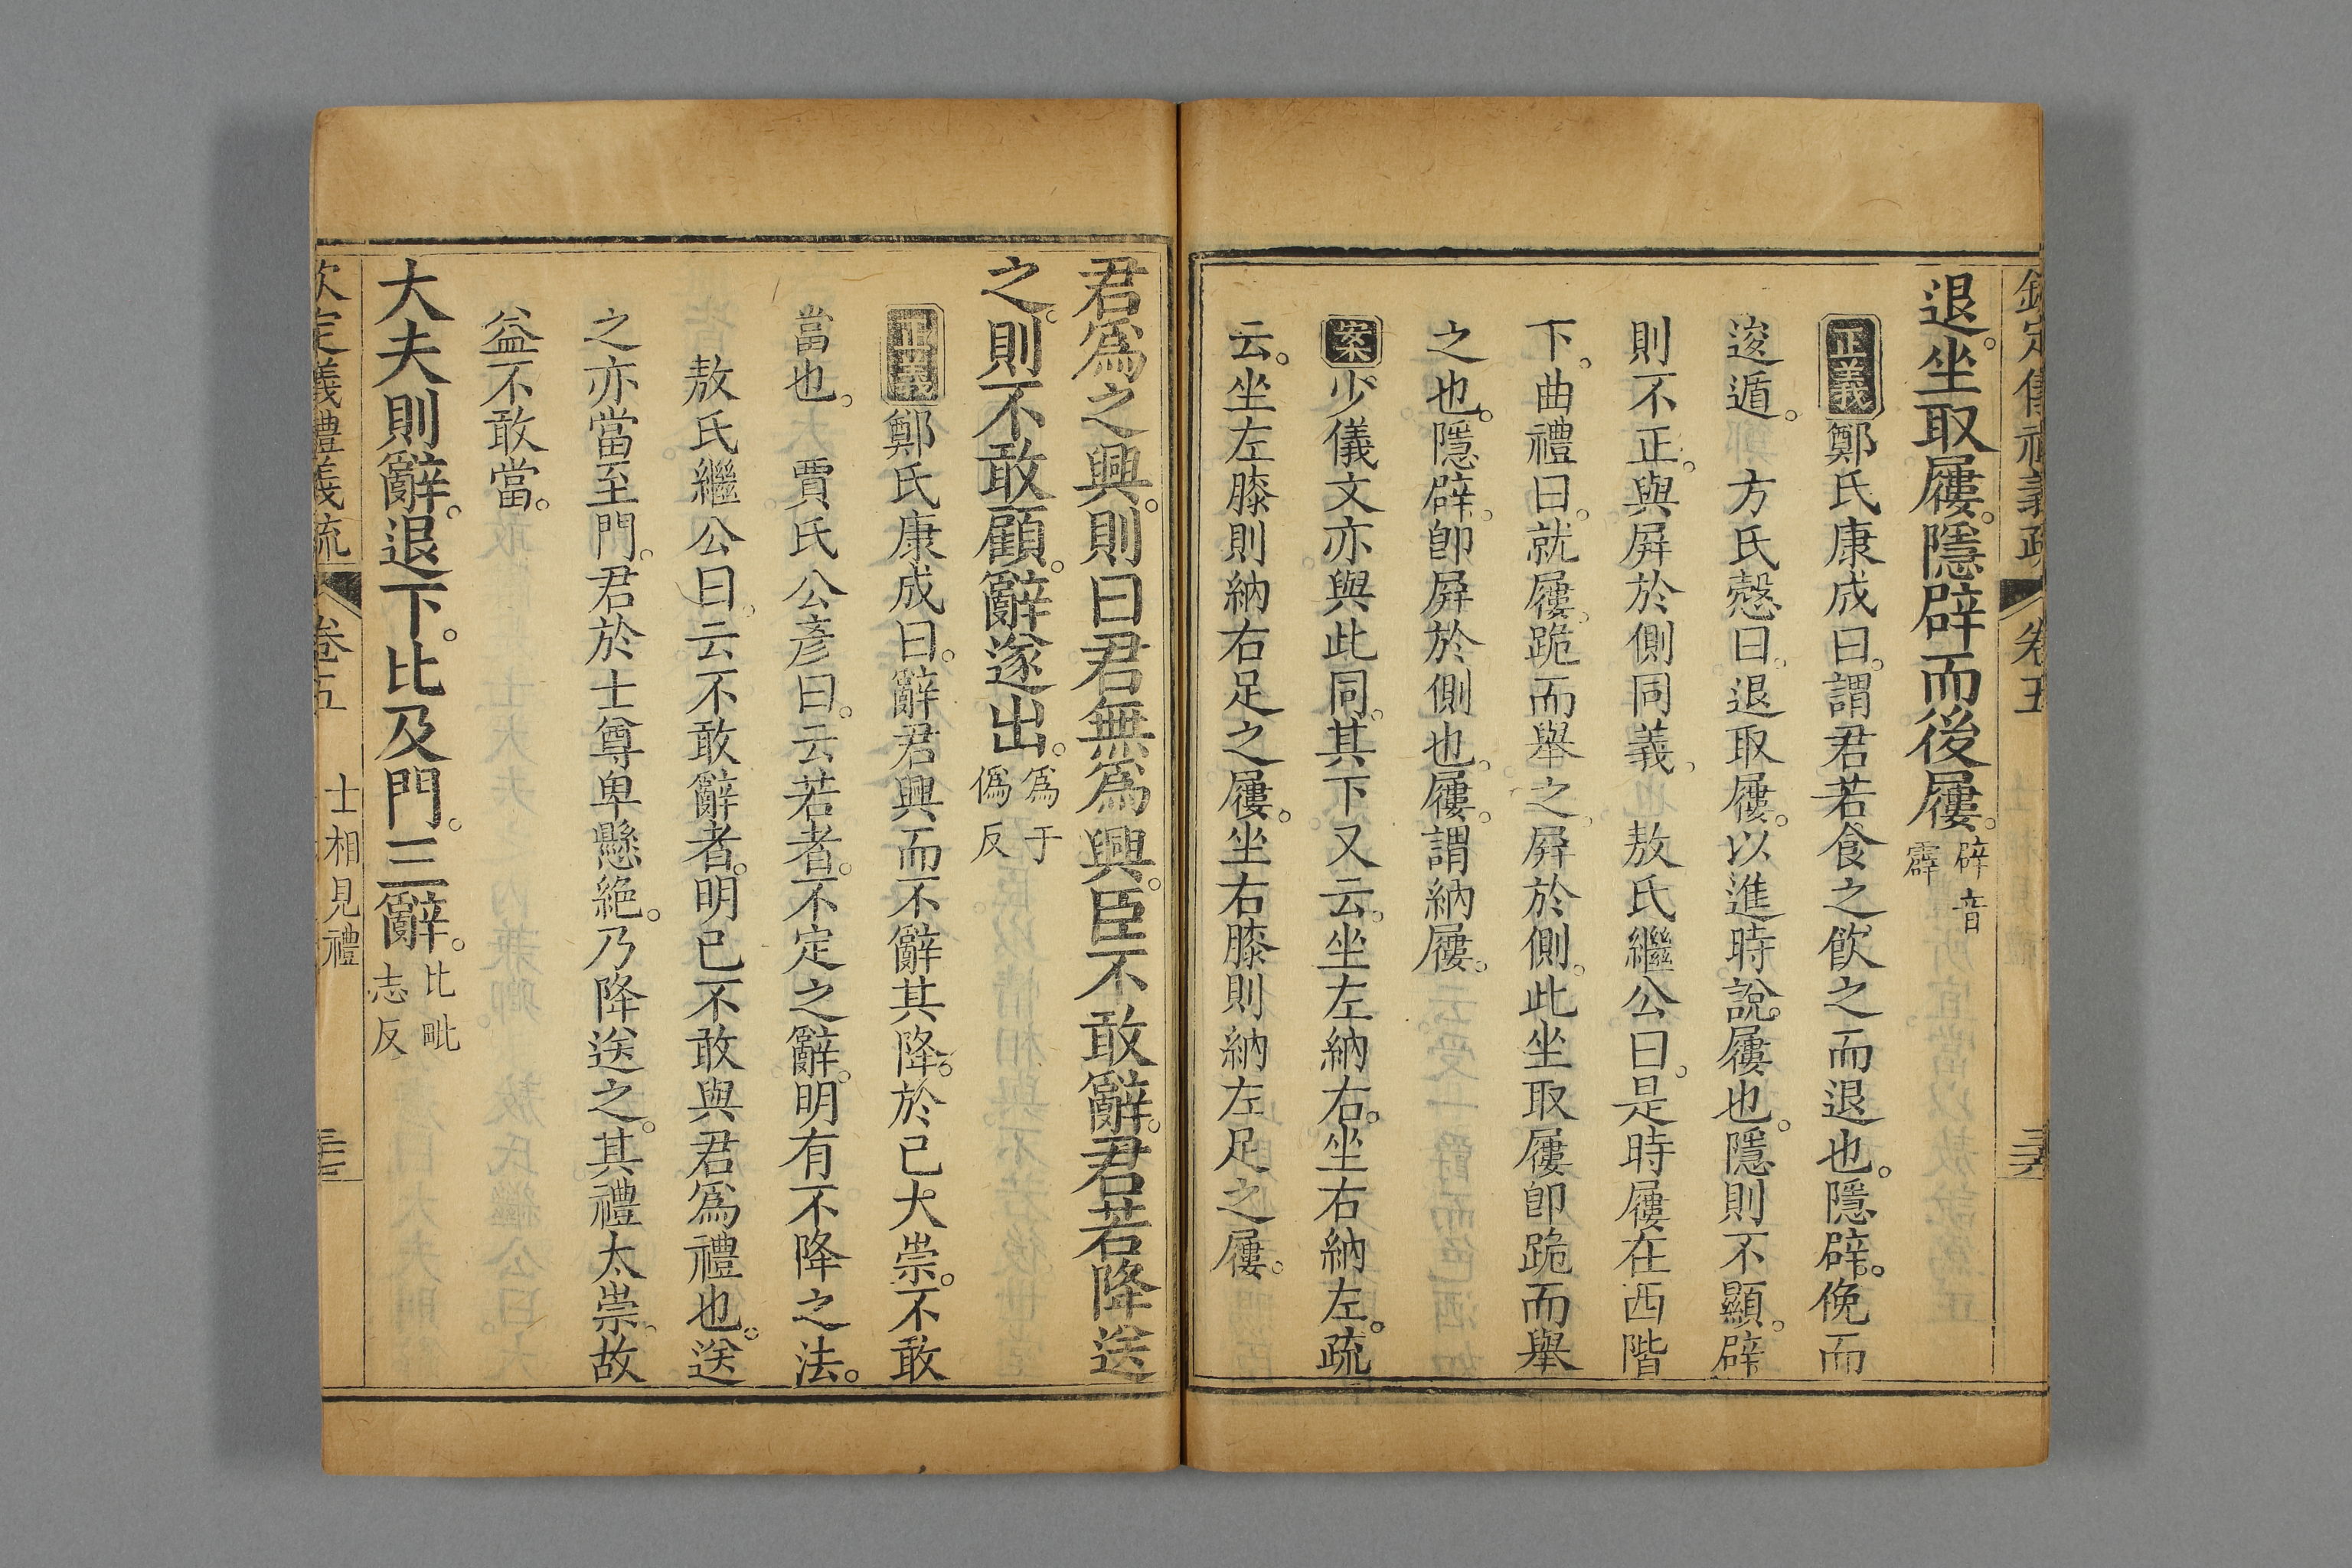 欽定儀禮義疏 卷五
退。坐取屨。隱辟而後屨。辟音霹
正義鄭氏康成曰。謂君若食之飲之而退也。隱辟。俛而
逡遁。 方氏慤曰。退取屨。以進時說屨也。隱則不顯。辟
則不正。與屏於側同義。 敖氏繼公曰。是時屨在西階
下。曲禮曰。就屨。跪而舉之。屏於側。此坐取屨卽跪而舉
之也。隱辟。卽屏於側也。屨。謂納屨。
案少儀文亦與此同。其下又云。坐左納右。坐右納左。疏
云。坐左膝則納右足之屨。坐右膝則納左足之屨。
君爲之興。則曰君無爲興。臣不敢辭。君若降送
之。則不敢顧。辭遂出。爲于僞反
正義鄭氏康成曰。辭君興而不辭其降。於已大崇。不敢
當也。 賈氏公彥曰。云若者。不定之辭。明有不降之法。
敖氏繼公曰。云不敢辭者。明已不敢與君爲禮也。送
之亦當至門。君於士尊卑懸絕。乃降送之。其禮太崇。故
益不敢當。
大夫則辭。退下。比及門。三辭。比毗志反
欽定儀禮義疏 卷五 士相見禮